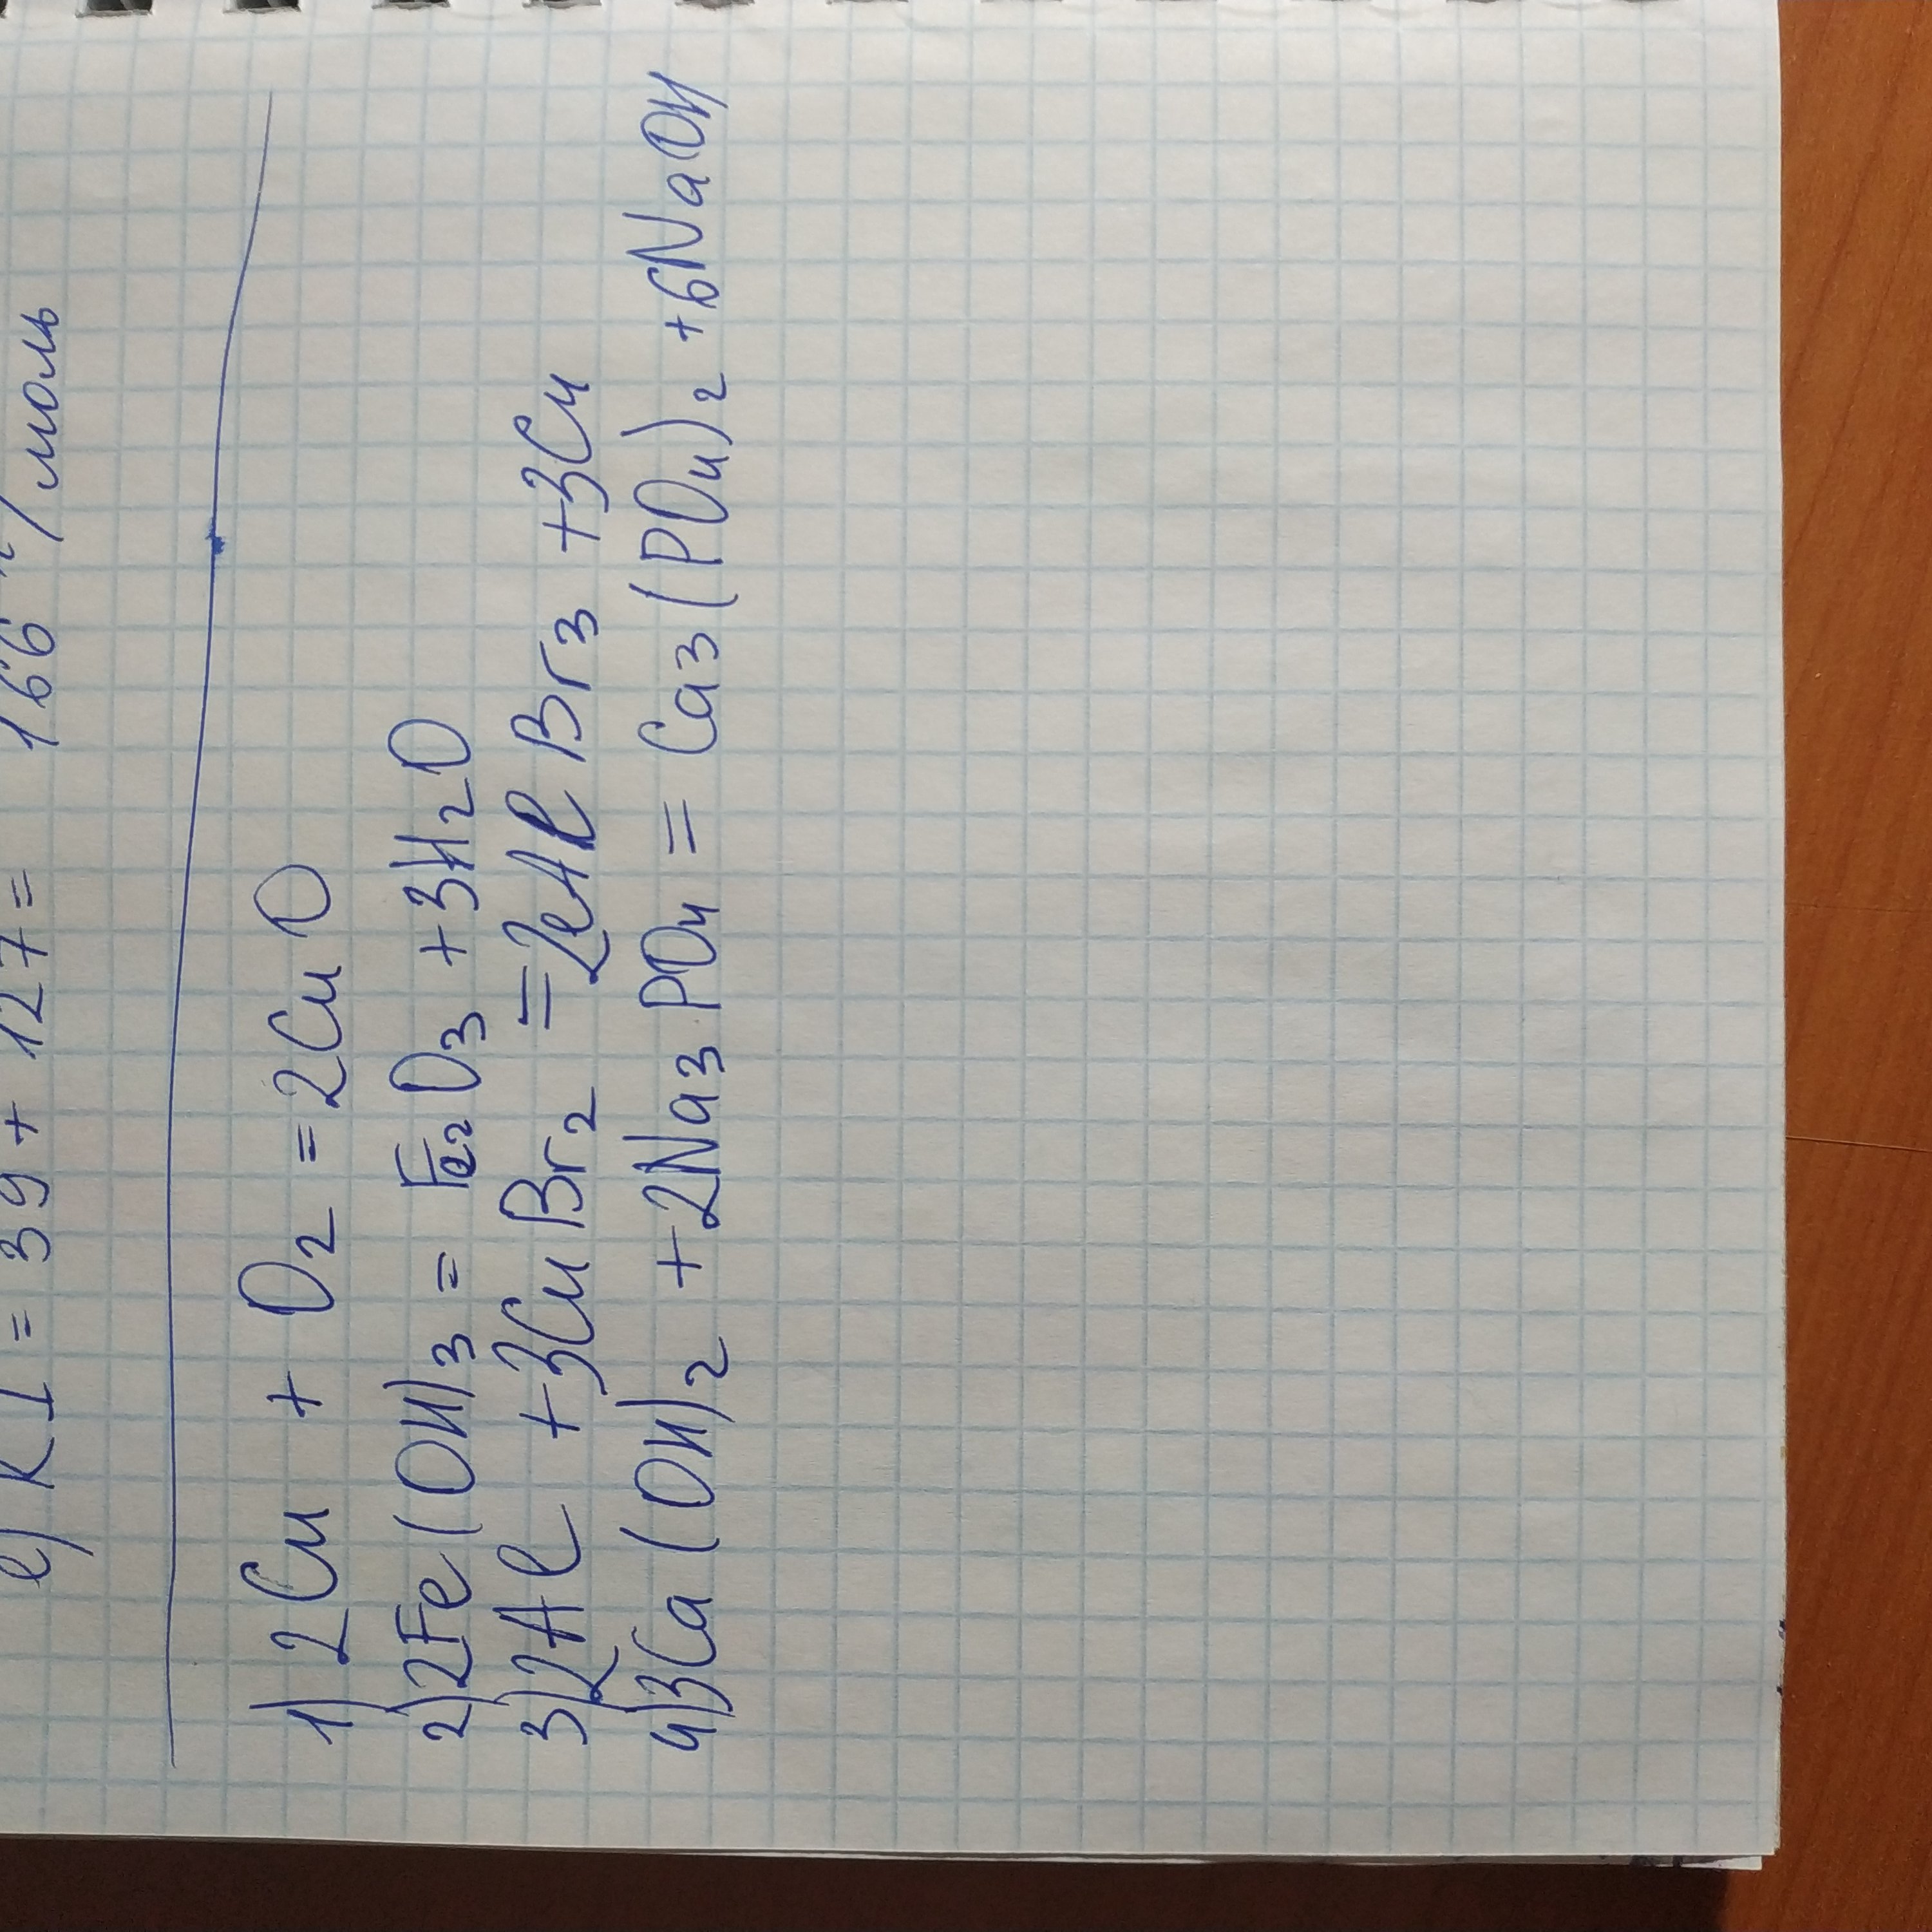 е) KI = 39 + 127 = 166 г/моль
1) 2Cu + O₂ = 2CuO
2) 2Fe(OH)₃ = Fe₂O₃ + 3H₂O
3) 2Al + 3CuBr₂ = 2AlBr₃ + 3Cu
4) 3Ca(OH)₂ + 2Na₃PO₄ = Ca₃(PO₄)₂ + 6NaOH